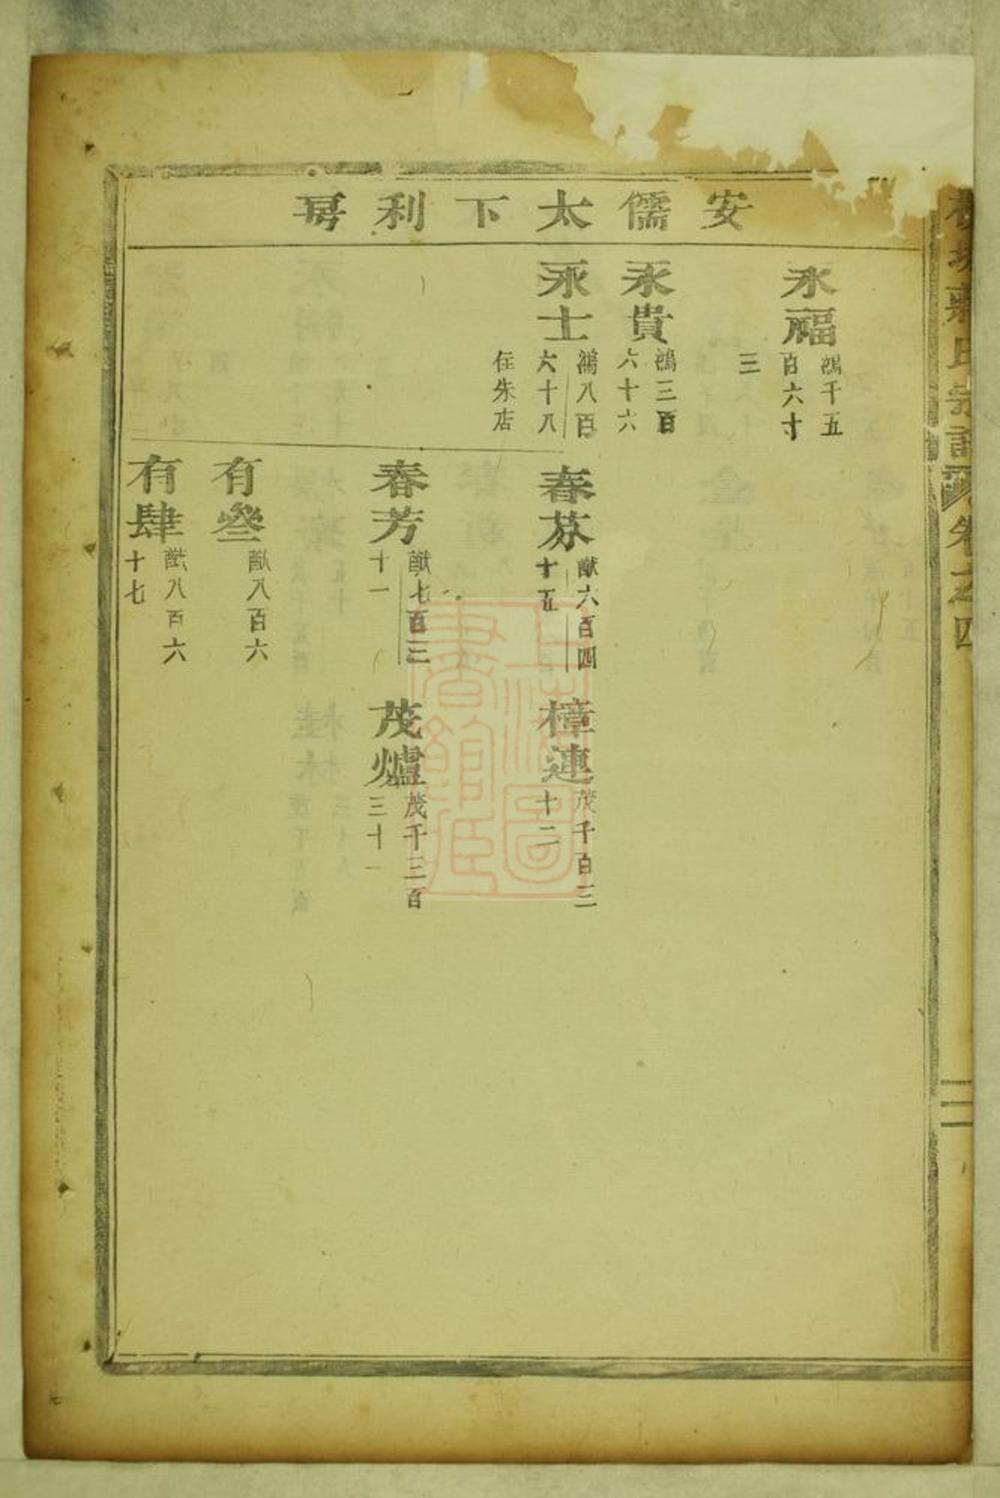 安儒太下利房
永福
鴻千五
百六十
三
永貴
鴻三百
六十六
永士
鴻八百
六十八
住朱店
春芬
猷六百四
十五
春芳
猷七百三
十一
有叄
猷八百六
有肆
猷八百六
十七
樟連
茂千百三
十二
茂爐
茂千三百
三十一
氏宗譜
卷之四
二
上海圖書館藏